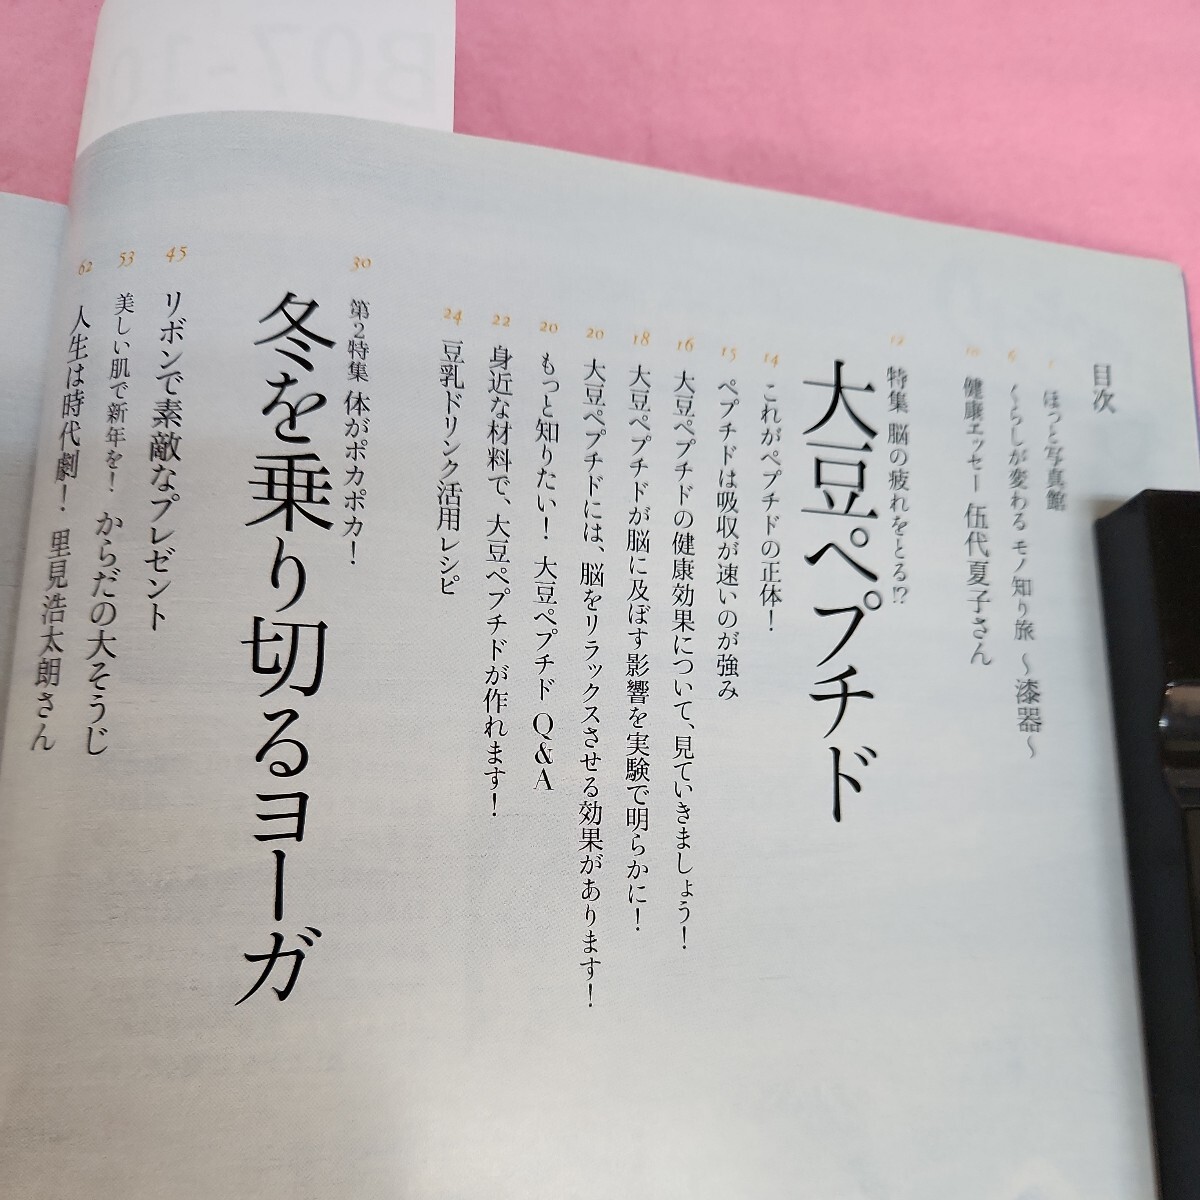 目次
ほっと写真館
6 くらしが変わる モノ知り旅 〜漆器〜
10 健康エッセー 伍代夏子さん
12 特集 脳の疲れをとる!?
大豆ペプチド
14 これがペプチドの正体！
15 ペプチドは吸収が速いのが強み
16 大豆ペプチドの健康効果について、見ていきましょう！
18 大豆ペプチドが脳に及ぼす影響を実験で明らかに！
20 大豆ペプチドには、脳をリラックスさせる効果があります！
20 もっと知りたい！ 大豆ペプチド Q&A
22 身近な材料で、大豆ペプチドが作れます！
24 豆乳ドリンク活用レシピ
30 第2特集 体がポカポカ！
冬を乗り切るヨーガ
45 リボンで素敵なプレゼント
53 美しい肌で新年を！ からだの大そうじ
62 人生は時代劇！ 里見浩太朗さん